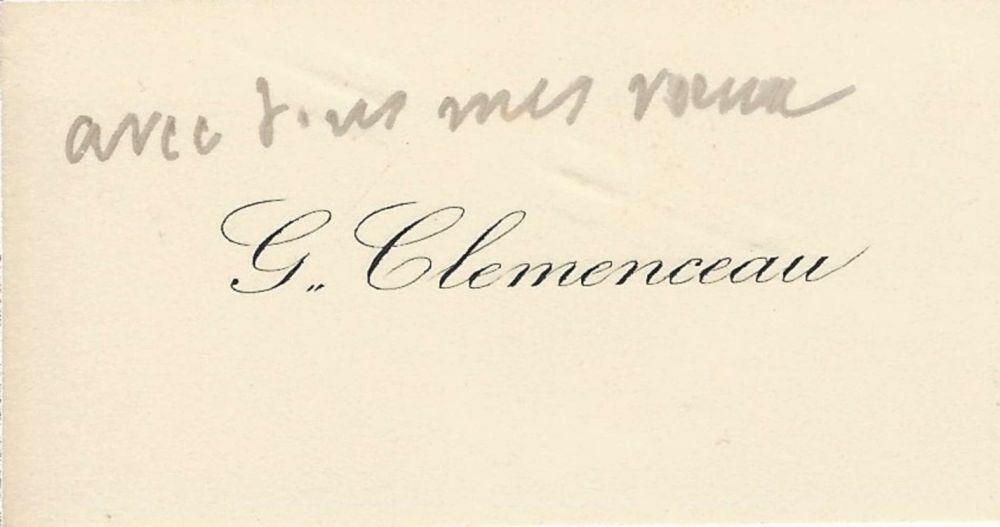 avec tous mes vœux
G. Clemenceau